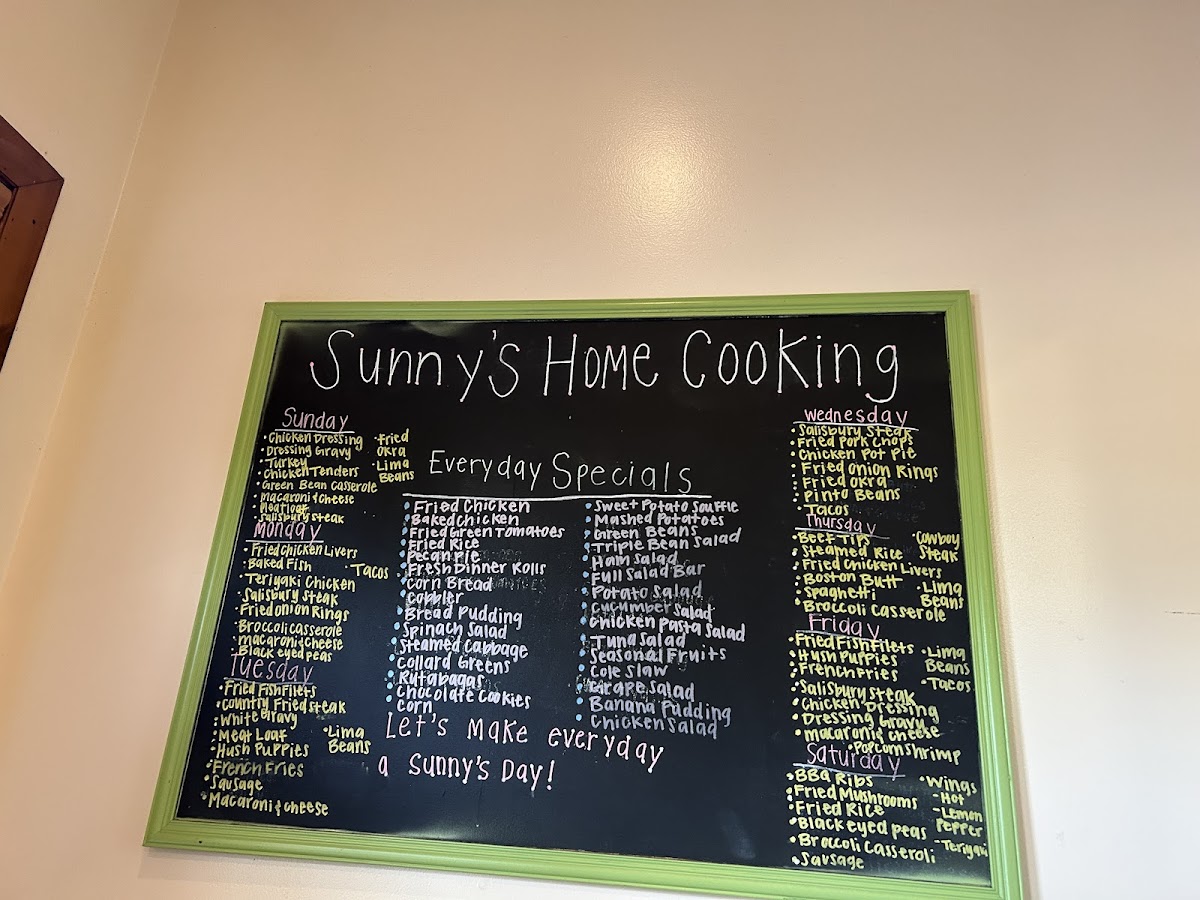 Sunny's Home Cooking
Sunday
• Chicken Dressing
• Dressing Gravy
• Turkey
• Chicken Tenders
• Green Bean Casserole
• Macaroni & Cheese
• Meatloaf
• Salisbury Steak
• Fried
Okra
• Lima
Beans
Monday
• Fried Chicken Livers
• Baked Fish
• Teriyaki Chicken
• Salisbury Steak
• Fried Onion Rings
• Broccoli Casserole
• Macaroni & Cheese
• Black eyed Peas
• Tacos
Tuesday
• Fried Fish Filets
• Country Fried Steak
• White Gravy
• Meat Loaf
• Hush Puppies
• French Fries
• Sausage
• Macaroni & Cheese
• Lima
Beans
Everyday Specials
• Fried Chicken
• Baked Chicken
• Fried Green Tomatoes
• Fried Rice
• Pecan Pie
• Fresh Dinner Rolls
• Corn Bread
• Cobbler
• Bread Pudding
• Spinach Salad
• Steamed Cabbage
• Collard Greens
• Rutabagas
• Chocolate Cookies
• Corn
• Sweet Potato Souffle
• Mashed Potatoes
• Green Beans
• Triple Bean Salad
• Ham Salad
• Full Salad Bar
• Potato Salad
• Cucumber Salad
• Chicken Pasta Salad
• Tuna Salad
• Seasonal Fruits
• Cole Slaw
• Grape Salad
• Banana Pudding
• Chicken Salad
Let's make everyday
a Sunny's Day!
Wednesday
• Salisbury Steak
• Fried Pork Chops
• Chicken Pot Pie
• Fried Onion Rings
• Fried Okra
• Pinto Beans
• Tacos
Thursday
• Beef Tips
• Steamed Rice
• Fried Chicken Livers
• Boston Butt
• Spaghetti
• Broccoli Casserole
• Cowboy
Steak
• Lima
Beans
Friday
• Fried Fish Filets
• Hush Puppies
• French Fries
• Salisbury Steak
• Chicken Dressing
• Dressing Gravy
• Macaroni & Cheese
• Popcorn Shrimp
• Lima
Beans
• Tacos
Saturday
• BBQ Ribs
• Fried Mushrooms
• Fried Rice
• Black eyed Peas
• Broccoli Casseroli
• Sausage
• Wings
- Hot
- Lemon
Pepper
- Teriyaki